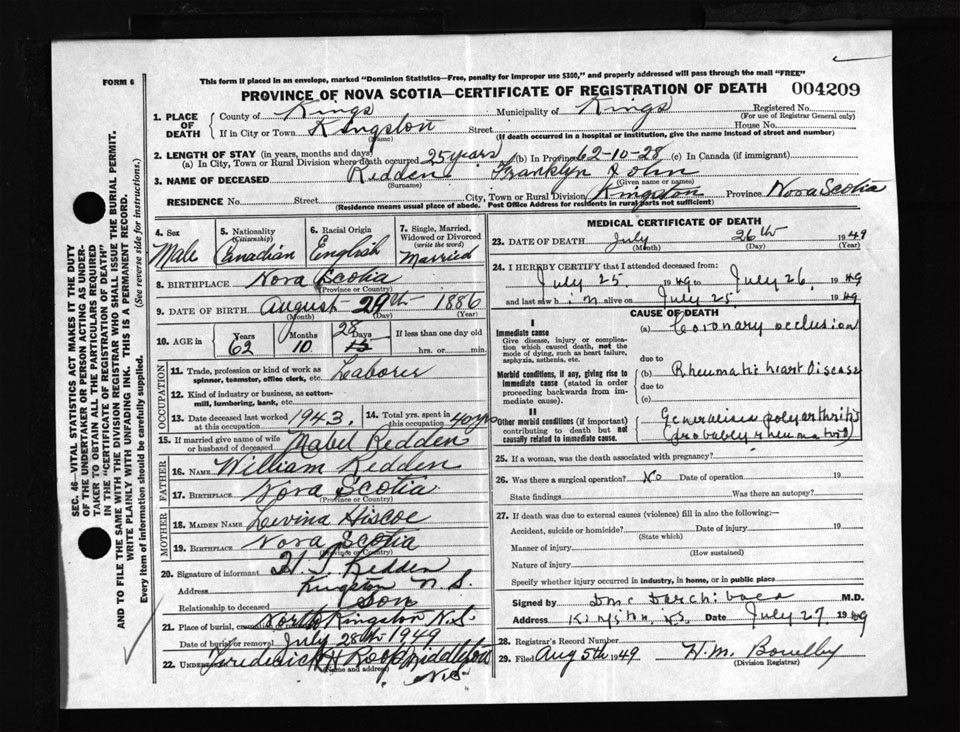 FORM 6
This form if placed in an envelope, marked "Dominion Statistics—Free, penalty for improper use $300," and properly addressed will pass through the mail "FREE"
PROVINCE OF NOVA SCOTIA—CERTIFICATE OF REGISTRATION OF DEATH 004209
1. PLACE OF DEATH County of Kings Municipality of Kings Registered No.
(For use of Registrar General only)
If in City or Town Kingston Street House No.
(Name) (If death occurred in a hospital or institution, give the name instead of street and number)
2. LENGTH OF STAY (in years, months and days)
(a) In City, Town or Rural Division where death occurred 25 years (b) In Province 62-10-28 (c) In Canada (if immigrant)
3. NAME OF DECEASED Redden Franklyn John
(Surname) (Given name or names)
RESIDENCE No. Street City, Town or Rural Division Kingston Province Nova Scotia
(Residence means usual place of abode. Post Office Address for residents in rural parts not sufficient)
4. Sex 5. Nationality (Citizenship) 6. Racial Origin 7. Single, Married, Widowed or Divorced (write the word)
Male Canadian English Married
8. BIRTHPLACE Nova Scotia
(Province or Country)
9. DATE OF BIRTH August 29th 1886
(Month) (Day) (Year)
10. AGE in Years Months Days If less than one day old
62 10 28 hrs. or min.
OCCUPATION
11. Trade, profession or kind of work as spinner, teamster, office clerk, etc. Laborer
12. Kind of industry or business, as cotton-mill, lumbering, bank, etc.
13. Date deceased last worked at this occupation 1943. 14. Total yrs. spent in this occupation 40 yrs
15. If married give name of wife or husband of deceased Mabel Redden
FATHER
16. NAME William Redden
17. BIRTHPLACE Nova Scotia
(Province or Country)
MOTHER
18. MAIDEN NAME Levina Hiscoe
19. BIRTHPLACE Nova Scotia
(Province or Country)
20. Signature of informant H Redden
Address Kingston N.S.
Relationship to deceased Son
21. Place of burial, North Kingston N.S.
Date of burial or removal July 28th 1949
22. Frederick H Roop Middleton
(Name and address)
N.S.
MEDICAL CERTIFICATE OF DEATH
23. DATE OF DEATH July 26th 1949
(Month) (Day) (Year)
24. I HEREBY CERTIFY that I attended deceased from:
July 25. 1949 to July 26. 1949
and last saw h im alive on July 25. 1949
CAUSE OF DEATH
I
Immediate cause (a) Coronary occlusion
Give disease, injury or complication which caused death, not the mode of dying, such as heart failure, asphyxia, asthenia, etc.
due to
Morbid conditions, if any, giving rise to immediate cause (stated in order proceeding backwards from immediate cause). (b) Rheumatic heart Disease
due to
(c)
II
Other morbid conditions (if important) contributing to death but not causally related to immediate cause. Generalised polyarthritis
Probably rheumatoid
25. If a woman, was the death associated with pregnancy?
26. Was there a surgical operation? No Date of operation 19
State findings Was there an autopsy?
27. If death was due to external causes (violence) fill in also the following:—
Accident, suicide or homicide? Date of injury 19
(State which)
Manner of injury
(How sustained)
Nature of injury
Specify whether injury occurred in industry, in home, or in public place
Signed by M.D.
Address Kingston, N.S. Date July 27 1949
28. Registrar's Record Number
29. Filed Aug 5th 1949 H.M.
(Division Registrar)
SEC. 46—VITAL STATISTICS ACT MAKES IT THE DUTY
OF THE UNDERTAKER OR PERSON ACTING AS UNDERTAKER TO OBTAIN ALL THE PARTICULARS REQUIRED
IN THE "CERTIFICATE OF REGISTRATION OF DEATH"
AND TO FILE THE SAME WITH THE DIVISION REGISTRAR WHO SHALL ISSUE THE BURIAL PERMIT.
WRITE PLAINLY WITH UNFADING INK. THIS IS A PERMANENT RECORD.
Every item of information should be carefully supplied. (See reverse side for instructions.)